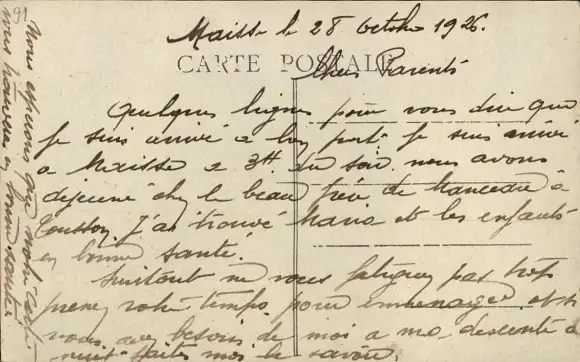 91
Maisse le 28 Octobre 1926.
CARTE POSTALE
Chers Parents
Quelques lignes pour vous dire que
je suis arrivé a bon port. je suis arrivé
a Maisse a 3H. du soir nous avons
dejeuné chez le beau frère de Manceau à
Tousson. J'ai trouvé Maria et les enfants
en bonne santé.
Surtout ne vous fatiguez pas trop
prenez votre temps pour emmenager et si
vous avez besoin de moi a ma descente de
nuit faites moi le savoir.
Nous esperons que
vous trouver en bonne santé